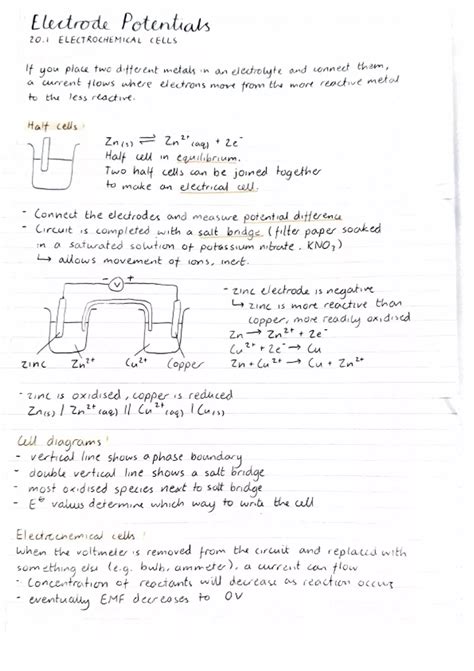 Electrode Potentials
20.1 ELECTROCHEMICAL CELLS
If you place two different metals in an electrolyte and connect them,
a current flows where electrons move from the more reactive metal
to the less reactive.
Half cells:
Zn(s) ⇌ Zn²⁺(aq) + 2e⁻
Half cell in equilibrium.
Two half cells can be joined together
to make an electrical cell.
- Connect the electrodes and measure potential difference
- Circuit is completed with a salt bridge (filter paper soaked
in a saturated solution of potassium nitrate. KNO₃)
↳ allows movement of ions, inert.
- V +
zinc Zn²⁺ Cu²⁺ Copper
- zinc electrode is negative
↳ zinc is more reactive than
copper, more readily oxidised
Zn → Zn²⁺ + 2e⁻
Cu²⁺ + 2e⁻ → Cu
Zn + Cu²⁺ → Cu + Zn²⁺
- zinc is oxidised, copper is reduced
Zn(s) | Zn²⁺(aq) || Cu²⁺(aq) | Cu(s)
Cell diagrams:
- vertical line shows a phase boundary
- double vertical line shows a salt bridge
- most oxidised species next to salt bridge
- E⦵ values determine which way to write the cell
Electrochemical cells:
When the voltmeter is removed from the circuit and replaced with
something else (e.g. bulb, ammeter), a current can flow
- Concentration of reactants will decrease as reaction occurs
- eventually EMF decreases to 0V